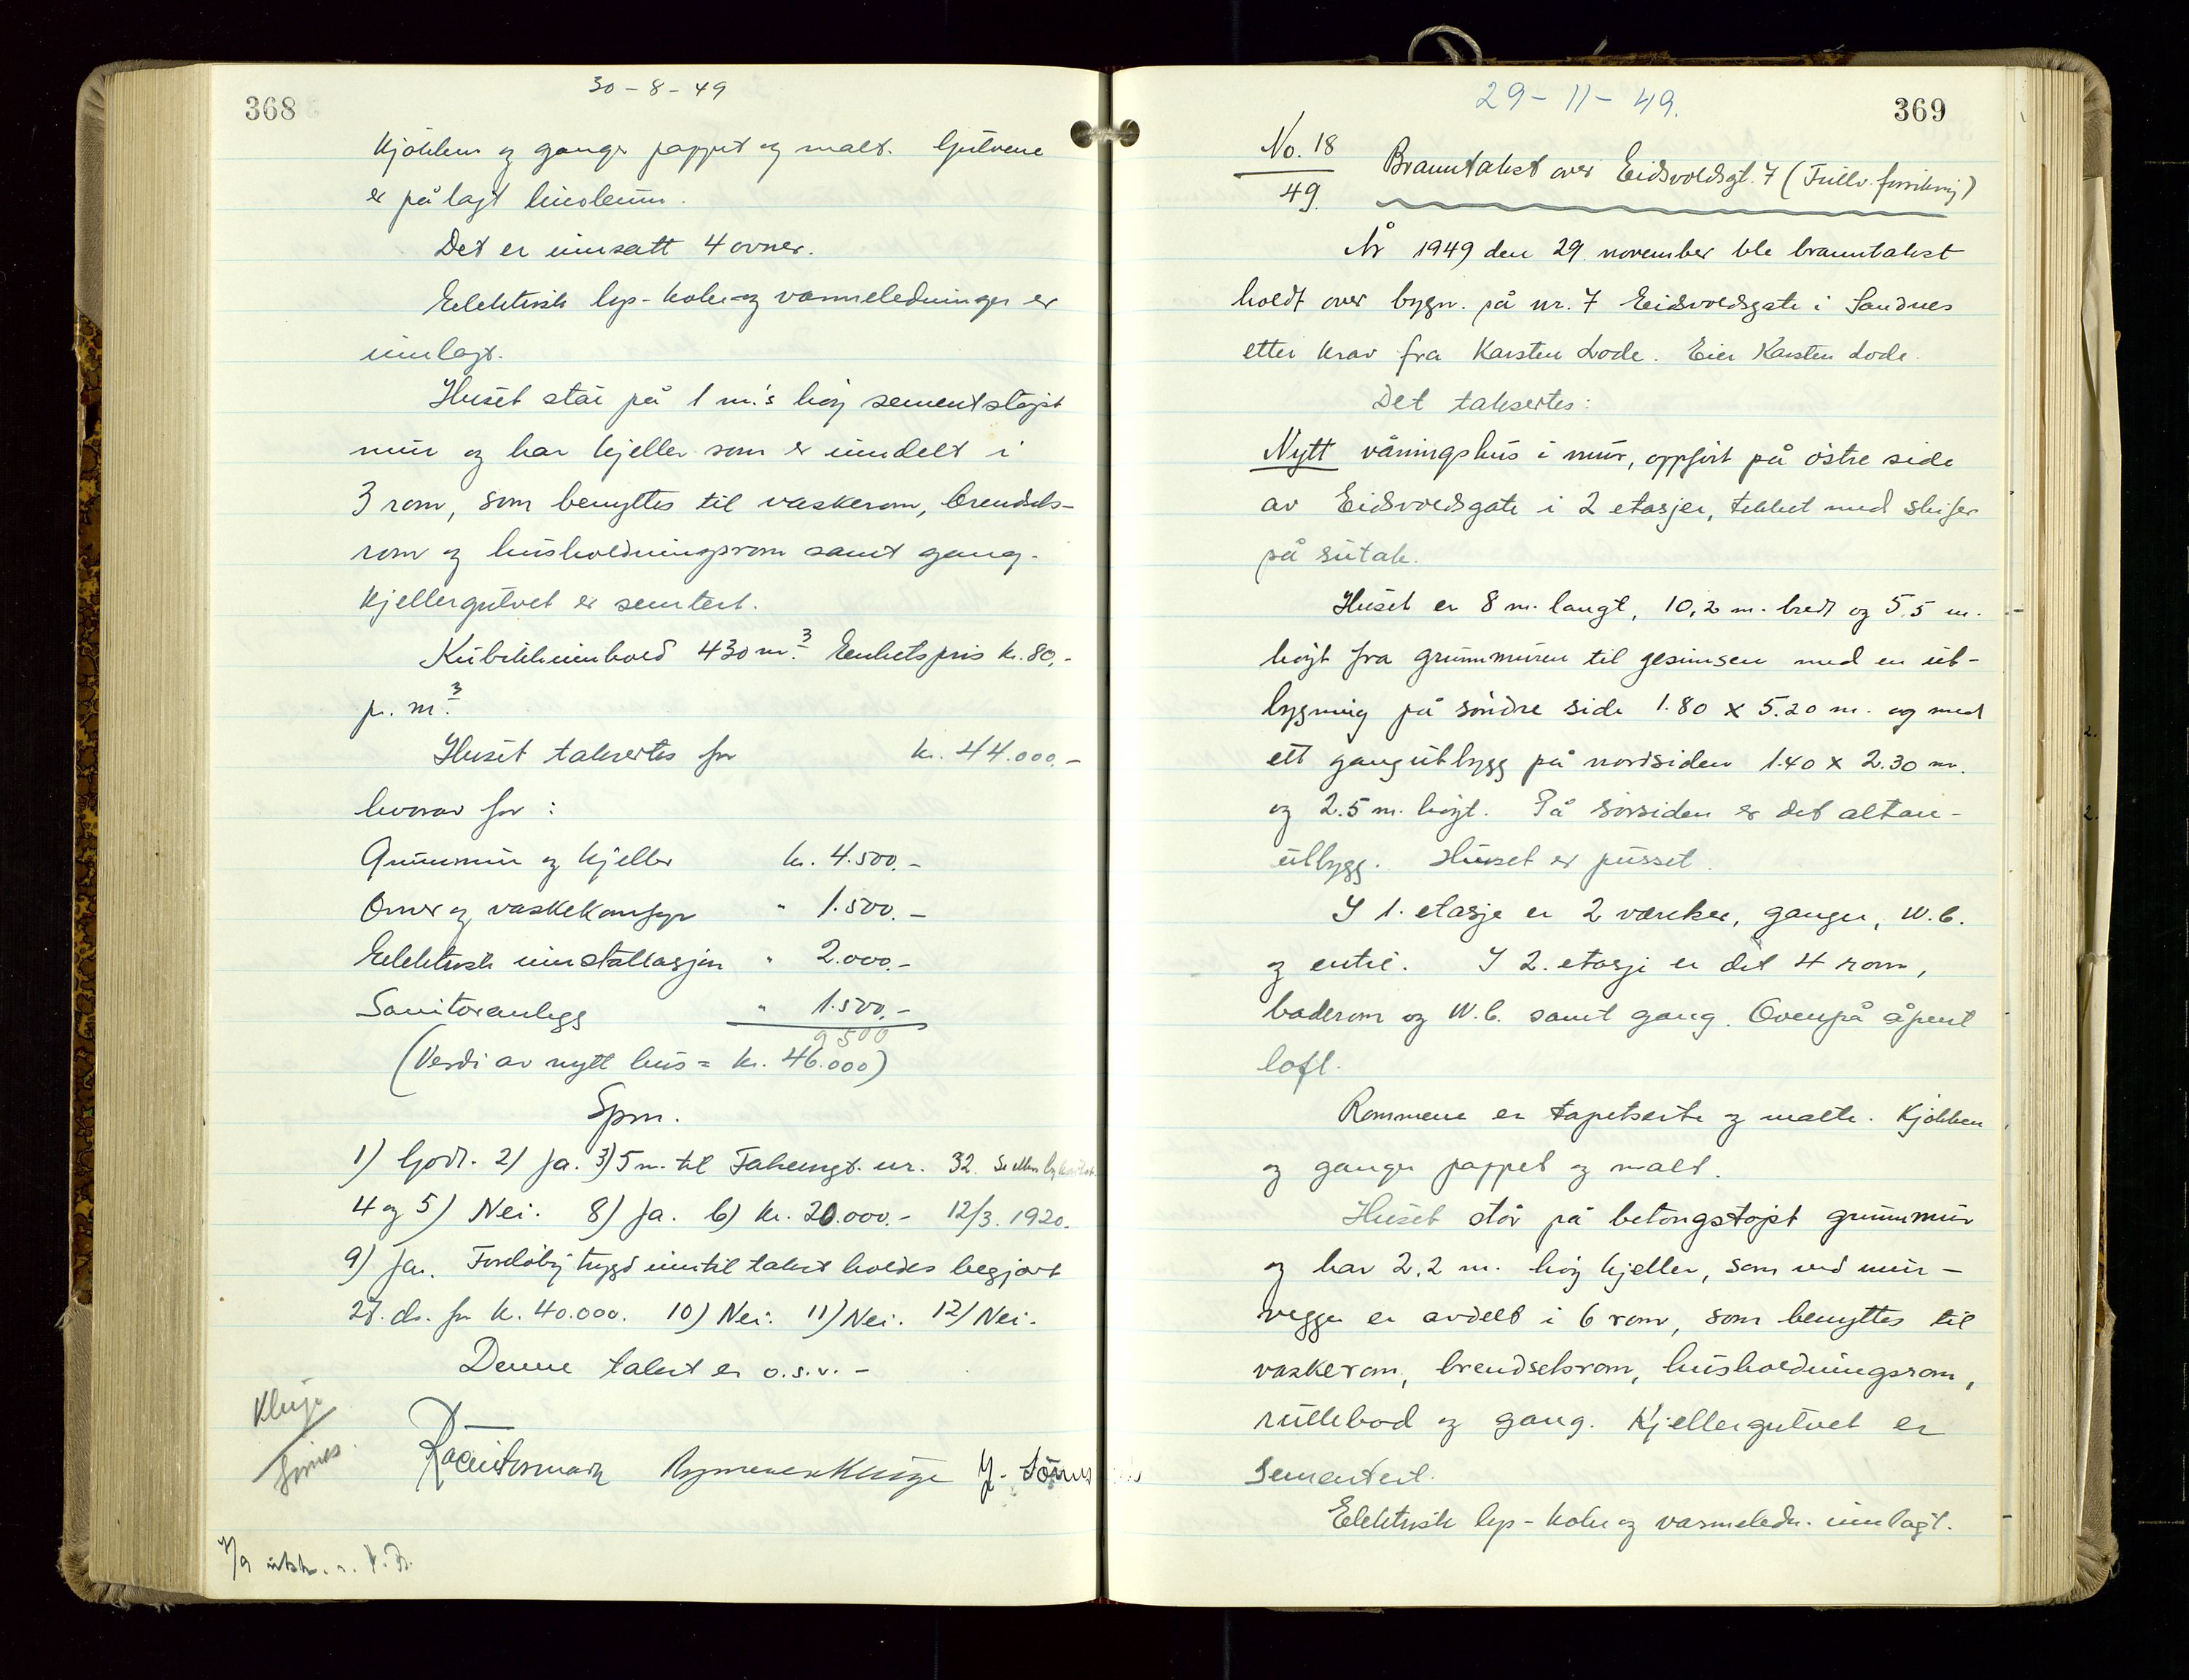 368
30-8-49
Kjökken og ganger pappet og malt. Gulvene
er på lagt linoleum.
Det er innsatt 4 ovner.
Elektrisk lys- koke og varmeledninger er
innlagt.
Huset står på 1 m.'s høy sementstøpt
mur og har kjeller som er inndelt i
3 rom, som benyttes til vaskerom, brendsels-
rom og husholdningsrom samt gang.
Kjellergulvet er sementert.
Kubikkinnhold 430 m³. Enhetspris kr. 80,-
pr. m³.
Huset takseres for kr. 44.000.-
hvorav for:
Grunnmur og kjeller kr. 4.500.-
Ovner og vaskekomfyr " 1.500.-
Elektrisk innstallasjon " 2.000.-
Sanitæranlegg " 1.500.-
9 500
(Verdi av nytt hus = kr. 46.000)
Spm.
1) Godt. 2) Ja. 3) 5 m. til nr. 32.
4 og 5) Nei. 8) Ja. 6) kr. 20.000.- 12/3. 1920.
9) Ja. Foreløbig trygd inntil takst holdes begjært
27. ds. for kr. 40.000. 10) Nei. 11) Nei. 12) Nei.
Denne takst er o.s.v. -
Kluge
369
29-11-49.
No. 18
49.
Branntakst over Eidsvoldsgt. 7 (Fullv. forsikring)
År 1949 den 29. november ble branntakst
holdt over bygn. på nr. 7 Eidsvoldsgate i Sandnes
etter krav fra Karsten Lode. Eier Karsten Lode.
Det takseres:
Nytt våningshus i mur, oppført på østre side
av Eidsvoldsgate i 2 etasjer, tekket med skifer
på sutak.
Huset er 8 m. langt, 10,2 m. bredt og 5.5 m.
høyt fra grunnmuren til gesimsen med en ut-
bygning på søndre side 1.80 x 5.20 m. og med
ett gangutbygg på nordsiden 1.40 x 2.30 m.
og 2.5 m. høyt. På sørsiden er det altan-
utbygg. Huset er pusset.
I 1. etasje er 2 værelser, ganger, W.C.
og entré. I 2. etasje er det 4 rom,
baderom og W.C. samt gang. Ovenpå åpent
loft.
Rommene er tapetserte og malte. Kjøkken
og ganger pappet og malt.
Huset står på betongstøpt grunnmur
og har 2.2 m. høy kjeller, som ved mur-
vegger er avdelt i 6 rom, som benyttes til
vaskerom, brendselsrom, husholdningsrom,
rullebod og gang. Kjellergulvet er
sementert.
Elektrisk lys- koke og varmeledn. innlagt.